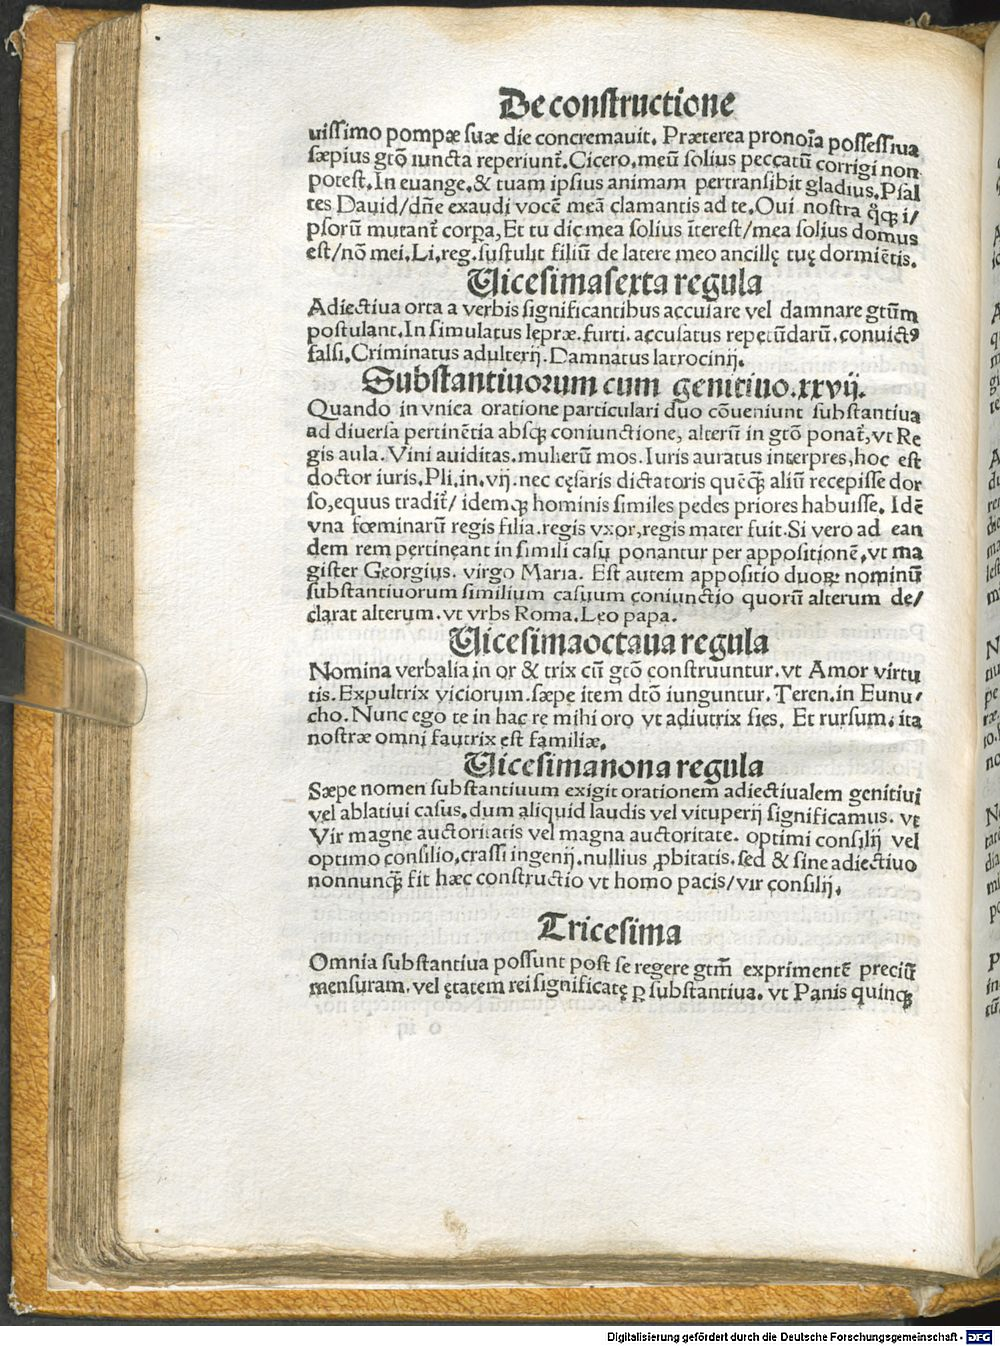 De constructione
uissimo pompæ suæ die concremauit. Præterea pronoīa possessiua
sæpius gtō iuncta reperiunt᷑. Cicero, meū solius peccatū corrigi non
potest. In euange. & tuam ipsius animam pertransibit gladius. Psal
tes Dauid/ dñe exaudi vocē meā clamantis ad te. Oui nostra q̄qꝫ i/
psorū mutant᷑ corpa, Et tu dic mea solius īterest/ mea solius domus
est/ nō mei. Li. reg. sustulit filiū de latere meo ancillę tuę dormiētis.
Uicesimasexta regula
Adiectiua orta a verbis significantibus accusare vel damnare gtūm
postulant. In simulatus lepræ. furti. accusatus repetūdarū. conuictꝯ
falsi. Criminatus adulterij. Damnatus latrocinij.
Substantiuorum cum genitiuo. xxvij.
Quando in vnica oratione particulari duo cōueniunt substantiua
ad diuersa pertinētia absqꝫ coniunctione, alterū in gtō ponat᷑, vt Re
gis aula. Vini auiditas. mulierū mos. Iuris auratus interpres, hoc est
doctor iuris. Pli. in. vij. nec cęsaris dictatoris quēqꝫ aliū recepisse dor
so, equus tradit᷑/ idemqꝫ hominis similes pedes priores habuisse. Idē
vna fœminarū regis filia. regis vxor, regis mater fuit. Si vero ad ean
dem rem pertineant in simili casu ponantur per appositionē, vt ma
gister Georgius. virgo Maria. Est autem appositio duoꝝ nominū
substantiuorum similium casuum coniunctio quorū alterum de/
clarat alterum. vt vrbs Roma. Leo papa.
Uicesimaoctaua regula
Nomina verbalia in or & trix cū gtō construuntur. vt Amor virtu
tis. Expultrix viciorum. sæpe item dtō iunguntur. Teren. in Eunu/
cho. Nunc ego te in hac re mihi oro vt adiutrix sies. Et rursum, ita
nostræ omni fautrix est familiæ.
Uicesimanona regula
Sæpe nomen substantiuum exigit orationem adiectiualem genitiui
vel ablatiui casus. dum aliquid laudis vel vituperij significamus. vt
Vir magne auctoritatis vel magna auctoritate. optimi consilij vel
optimo consilio, crassi ingenij. nullius ꝓbitatis. sed & sine adiectiuo
nonnunqꝫ fit hæc constructio vt homo pacis/ vir consilij.
Tricesima
Omnia substantiua possunt post se regere gtm̄ exprimentē preciū
mensuram. vel ętatem rei significatę ꝑ substantiua. vt Panis quinqꝫ
Digitalisierung gefördert durch die Deutsche Forschungsgemeinschaft - DFG